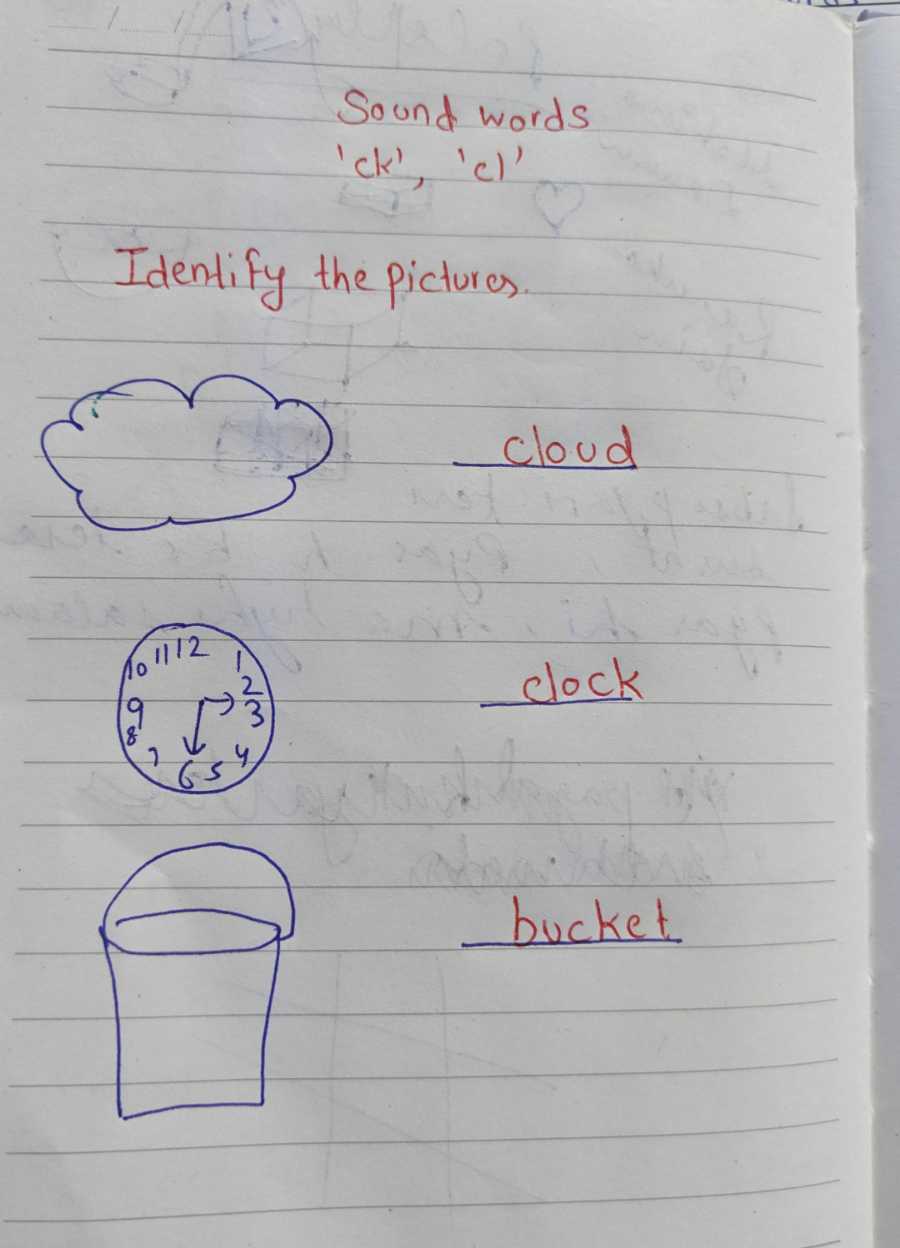 Sound words
'ck', 'cl'
Identify the pictures.
cloud
12
11
1
10
2
9
3
8
4
7
6
5
clock
bucket